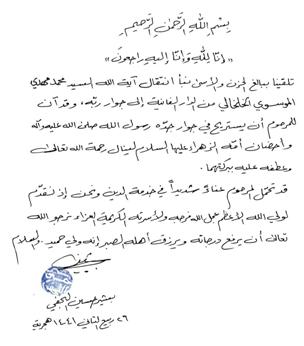 بسم الله الرحمن الرحيم
«إنا لله وإنا إليه راجعون»
تلقينا ببالغ الحزن والأسى نبأ انتقال آية الله السيد محمد مهدي
الموسوي الخلخالي من الدار الفانية إلى جوار ربه، وقد آن
للمرحوم أن يستريح في جوار جدّه رسول الله صلى الله عليه وآله
واحضان أمّه الزهراء عليها السلام لينال رحمة الله تعالى
وعطفه عليه ببركتهما.
قد تحمّل المرحوم عناءً شديداً في خدمة الدين ونحن إذ نتقدّم
لولي الله الاعظم عجل الله فرجه ولأسرته الكريمة بالعزاء نرجو الله
تعالى أن يرفع درجاته ويرزق أهله الصبر إنه ولي حميد. والسلام
بشير حسين النجفي
٢٦ ربيع الثاني ١٤٤١ هجرية